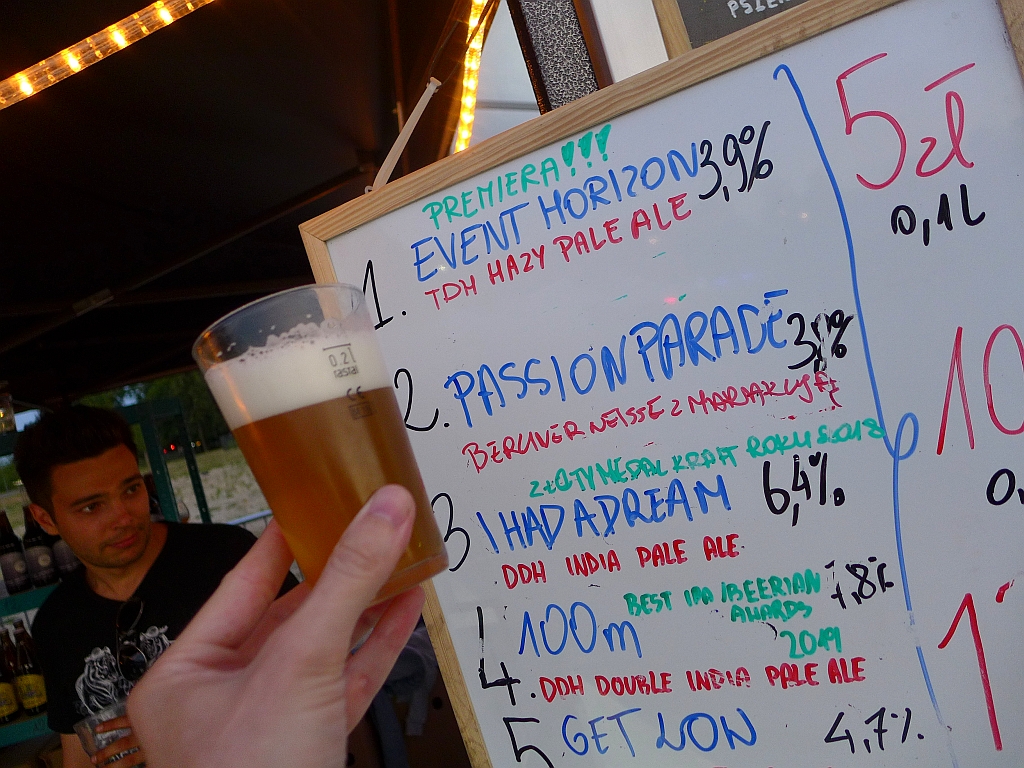 PREMIERA!!!
1. EVENT HORIZON 3,9%
TDH HAZY PALE ALE
2. PASSION PARADE
BERLINER WEISSE Z MARAKUJĄ
ZŁOTY MEDAL KRAFT ROKU 2018
3 I HAD A DREAM 6,4%
DDH INDIA PALE ALE
BEST IPA /BEERIAN
AWARDS
2019
4. 100m 7,8%
DDH DOUBLE INDIA PALE ALE
5 GET LOW 4,7%
5 zł
0,1L
10
0,
1
0.2l
rastal
CE